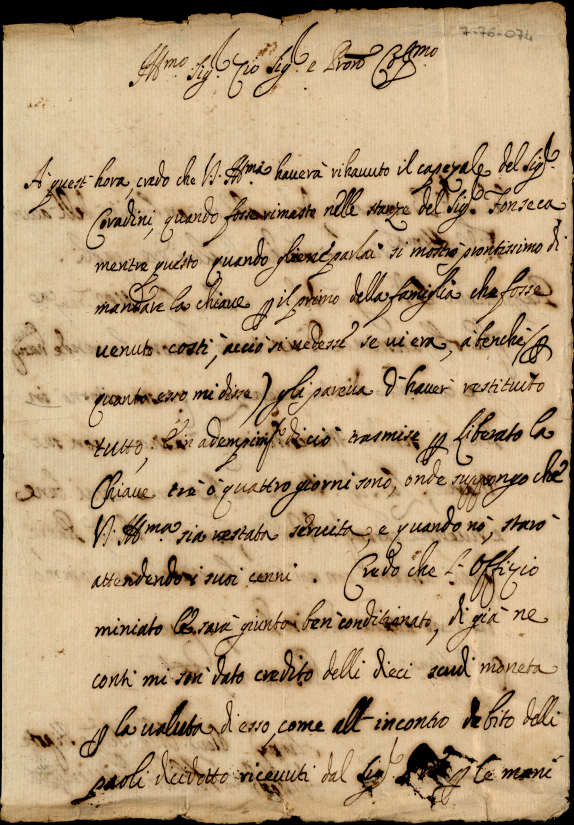 7-76-074
Ill.mo Sig.r Zio Sig.r e Pron Col.mo
A quest' hora, credo che V. Ill.ma haverà rihavuto il capezale del Sig.r
Coradini, quando fosse rimasto nelle stanze del Sig.r Fonseca
mentre questo quando gliene parlai si mostrò prontissimo di
mandare la chiave p il primo della famiglia che fosse
venuto costì, acciò si vedesse se vi era, abenche (p
quanto esso mi disse) gli pareva d'haver restituito
tutto, In adempim.to di ciò trasmise p Liberato la
Chiave trè ò quattro giorni sono, onde suppongo che
V. Ill.ma sia restata servita, e quando nò, starò
attendendo i suoi cenni. Credo che L' Offizio
miniato le sarà giunto ben conditionato, di già ne
conti mi son dato credito delli dieci scudi moneta
p la valuta di esso, come all' incontro debito delli
paoli diecidetto ricevuti dal Sig.r p le mani